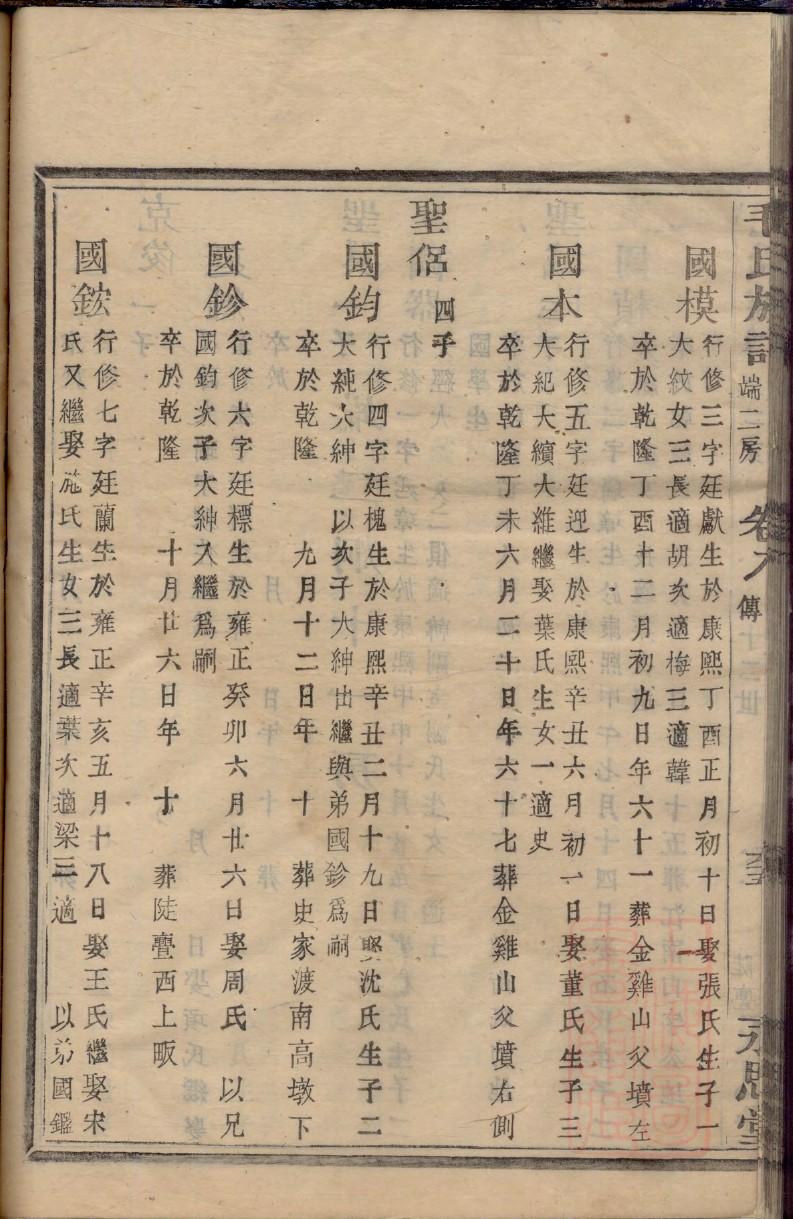 毛氏族譜 端二房 卷八 傳 永思堂
國模
行修三字廷獻生於康熙丁酉正月初十日娶張氏生子一
大紋女三長適胡次適梅三適韓
卒於乾隆丁酉十二月初九日年六十一葬金雞山父墳左
國本
行修五字廷迎生於康熙辛丑六月初一日娶董氏生子三
大紀大纘大維繼娶葉氏生女一適史
卒於乾隆丁未六月二十日年六十七葬金雞山父墳右側
聖侶 四子
國鈞
行修四字廷槐生於康熙辛丑二月十九日娶沈氏生子二
大純大紳 以次子大紳出繼與弟國鉁爲嗣
卒於乾隆 九月十二日年 十 葬史家渡南高墩下
國鉁
行修六字廷標生於雍正癸卯六月廿六日娶周氏 以兄
國鈞次子大紳入繼爲嗣
卒於乾隆 十月廿六日年 十 葬陡亹西上畈
國鋐
行修七字廷蘭生於雍正辛亥五月十八日娶王氏繼娶宋
氏又繼娶施氏生女三長適葉次適梁三適 以弟國鑑